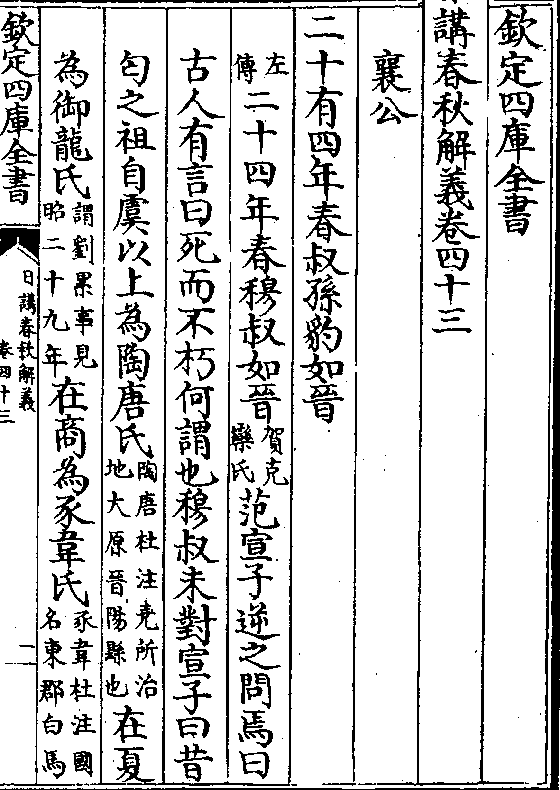 欽定四庫全書
講春秋解義卷四十三
襄公
二十有四年春叔孫豹如晉
左傳二十四年春穆叔如晉賀克欒氏范宣子逆之問焉曰
古人有言曰死而不朽何謂也穆叔未對宣子曰昔
匄之祖自虞以上為陶唐氏陶唐杜注堯所治地大原晉陽縣也在夏
為御龍氏謂劉累事見昭二十九年在商為豕韋氏豕韋杜注國名東郡白馬
欽定四庫全書
日講春秋解義
卷四十三
一